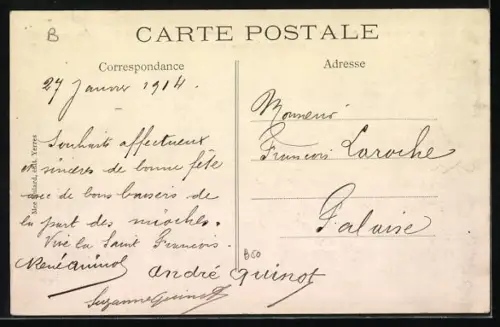 B
CARTE POSTALE
Correspondance
Adresse
27 Janvier 1914.
Souhaits affectueux
et sincères de bonne fête
avec de bons baisers de
la part des mioches.
Vive la Saint François.
René Guinot
André Guinot
Suzanne Guinot
Monsieur
François Laroche
Falaise
B50
édit. Yerres